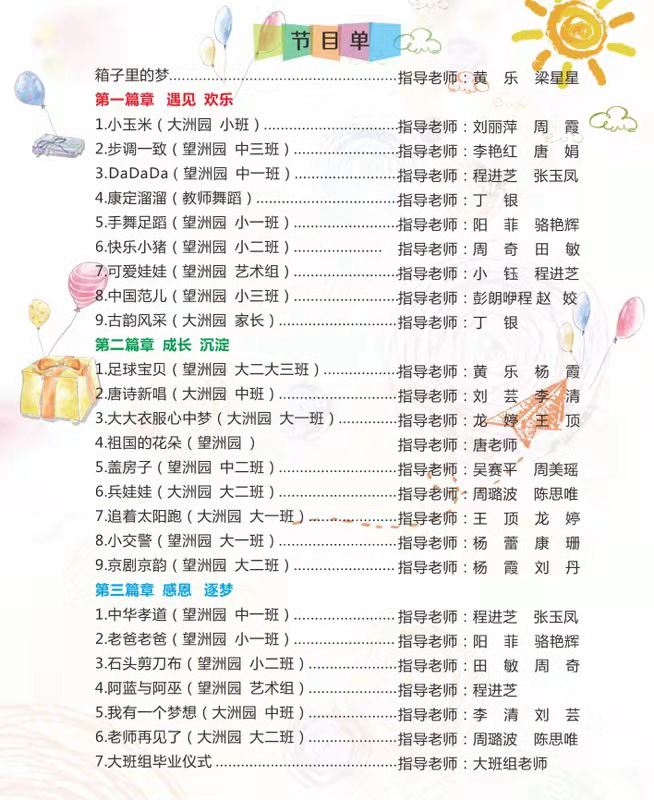 节目单
箱子里的梦......................................................指导老师：黄 乐 梁星星
第一篇章 遇见 欢乐
1.小玉米（大洲园 小班）..............................指导老师：刘丽萍 周 霞
2.步调一致（望洲园 中三班）........................指导老师：李艳红 唐 娟
3.DaDaDa（望洲园 中一班）........................指导老师：程进芝 张玉凤
4.康定溜溜（教师舞蹈）................................指导老师：丁 银
5.手舞足蹈（望洲园 小一班）........................指导老师：阳 菲 骆艳辉
6.快乐小猪（望洲园 小二班）.....................指导老师：周 奇 田 敏
7.可爱娃娃（望洲园 艺术组）........................指导老师：小 钰 程进芝
8.中国范儿（望洲园 小三班）........................指导老师：彭朗咿程 赵 姣
9.古韵风采（大洲园 家长）...........................指导老师：丁 银
第二篇章 成长 沉淀
1.足球宝贝（望洲园 大二大三班）..................指导老师：黄 乐 杨 霞
2.唐诗新唱（大洲园 中班）...........................指导老师：刘 芸 李 清
3.大大衣服心中梦（大洲园 大一班）...............指导老师：龙 婷 王 顶
4.祖国的花朵（望洲园 ） 指导老师：唐老师
5.盖房子（望洲园 中二班）...........................指导老师：吴赛平 周美瑶
6.兵娃娃（大洲园 大二班）...........................指导老师：周璐波 陈思唯
7.追着太阳跑（大洲园 大一班）.....................指导老师：王 顶 龙 婷
8.小交警（望洲园 大一班）...........................指导老师：杨 蕾 康 珊
9.京剧京韵（望洲园 大二班）........................指导老师：杨 霞 刘 丹
第三篇章 感恩 逐梦
1.中华孝道（望洲园 中一班）........................指导老师：程进芝 张玉凤
2.老爸老爸（望洲园 小一班）........................指导老师：阳 菲 骆艳辉
3.石头剪刀布（望洲园 小二班）.....................指导老师：田 敏 周 奇
4.阿蓝与阿巫（望洲园 艺术组）.....................指导老师：程进芝
5.我有一个梦想（大洲园 中班）.....................指导老师：李 清 刘 芸
6.老师再见了（大洲园 大二班）.....................指导老师：周璐波 陈思唯
7.大班组毕业仪式..........................................指导老师：大班组老师